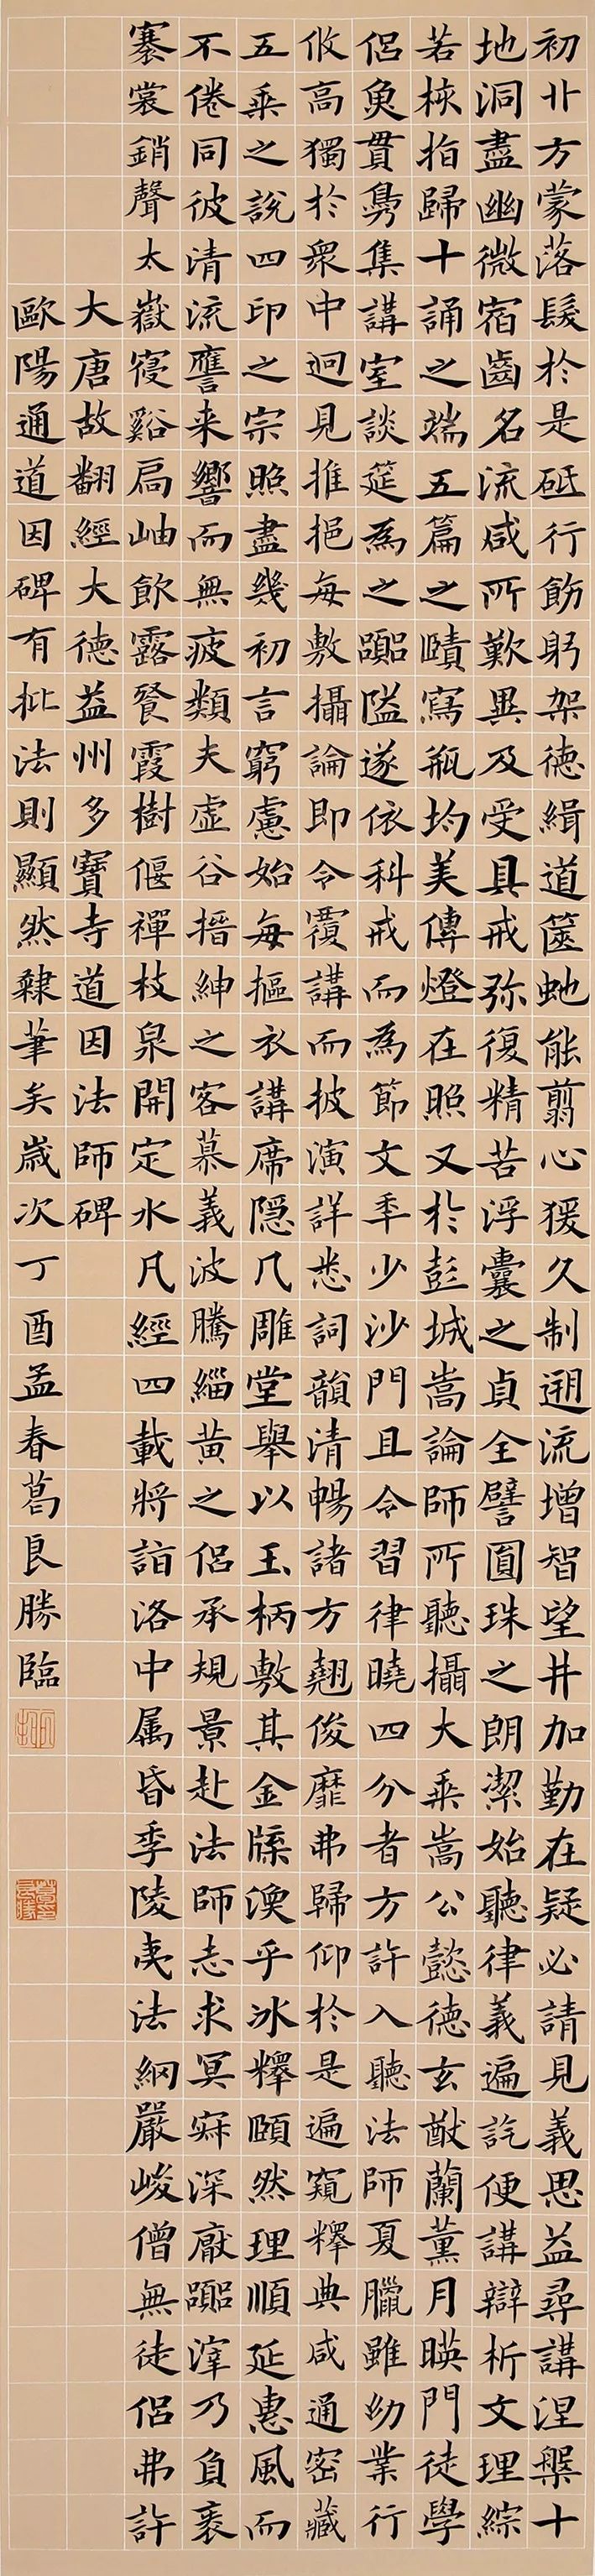 初廾方蒙落髮於是砥行飭躬架德緝道篋虵能翦心猨久制遡流增智望井加勤在疑必請見義思益尋講涅槃十
地洞盡幽微宿齒名流咸所歎異及受具戒弥復精苦浮囊之貞全譬圓珠之朗潔始聽律義遍訖便講辯析文理綜
若梜指歸十誦之端五篇之賾寫瓶均美傳燈在照又於彭城嵩論師所聽攝大乘嵩公懿德玄猷蘭薰月暎門徒學
侶魚貫鳧集講室談筵為之䠶隘遂依科戒而為節文年少沙門且令習律曉四分者方許入聽法師夏臘雖幼業行
攸高獨於衆中迥見推挹每敷攝論即令覆講而披演詳悉詞韻清暢諸方翹俊靡弗歸仰於是遍窺釋典咸通密藏
五乘之説四印之宗照盡幾初言窮慮始每摳衣講席隱几雕堂舉以玉柄敷其金牒渙乎冰釋頤然理順延惠風而
不倦同彼清流譍来響而無疲類夫虛谷搢紳之客慕義波騰緇黃之侶承規景赴法師志求冥寂深厭䠶滓乃負袠
褰裳銷聲太嶽寑谿扃岫飲露餐霞樹偃禪枝泉開定水凡經四載將詣洛中属昏季陵夷法網嚴峻僧無徒侶弗許
大唐故翻經大德益州多寶寺道因法師碑
歐陽通道因碑有批法則顯然隸筆矣歲次丁酉孟春葛良勝臨